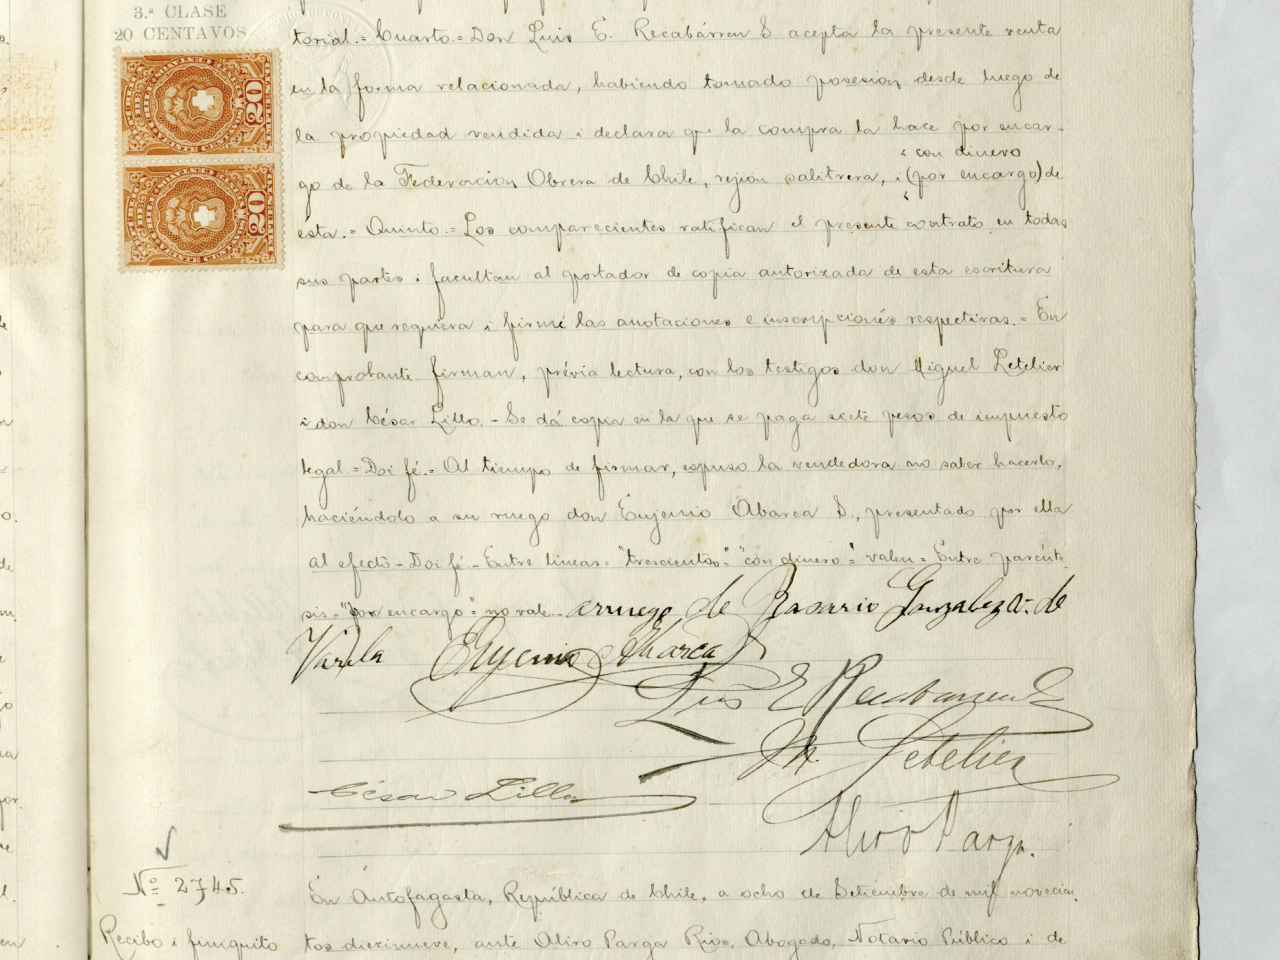 3.ª CLASE
20 CENTAVOS
torial.= Cuarto.= Don Luis E. Recabárren S acepta la presente venta
en la forma relacionada, habiendo tomado posesion desde luego de
la propiedad vendida i declara que la compra la hace por encar-
con dinero
go de la Federacion Obrera de Chile, rejion salitrera, i (por encargo) de
esta.= Quinto.= Los comparecientes ratifican el presente contrato en todas
sus partes i facultan al portador de copia autorizada de esta escritura
para que requiera i firme las anotaciones e inscripciones respectivas.= En
comprobante firman, prévia lectura, con los testigos don Miguel Letelier
i don César Lillo.- Se dá copia en la que se paga siete pesos de impuesto
legal.= Doi fé.= Al tiempo de firmar, espuso la vendedora no saber hacerlo,
haciéndolo a su ruego don Eujenio Abarca S., presentado por ella
al efecto - Doi fé.- Entre lineas= "trescientos"- "con dinero"= valen= Entre parénte
sis= "por encargo"= no vale. arruego de Rosario Gonzalez v. de
Varela Eujenio Abarca S
Luis E Recabarren S
M. Letelier
César Lillo
Aliro Parga.
No 2745.
En Antofagasta, República de Chile, a ocho de Setiembre de mil novecien
Recibo i finiquito
tos diezinueve, ante Aliro Parga Rios, Abogado, Notario Público i de
20
20